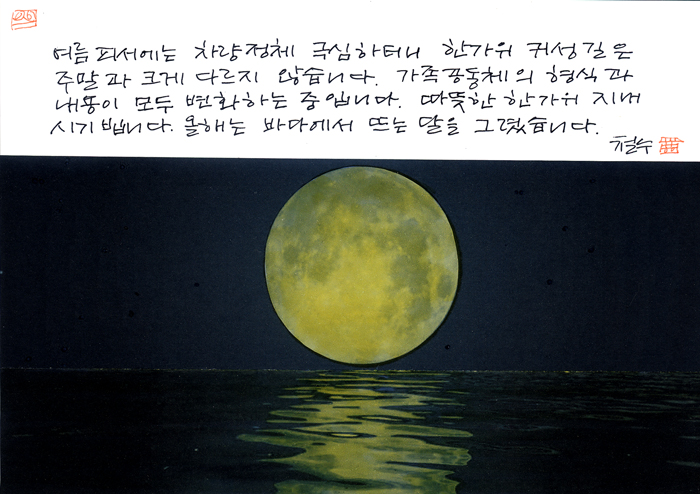 여름 피서에는 차량정체 극심하더니 한가위 귀성길은
주말과 크게 다르지 않습니다. 가족공동체의 형식과
내용이 모두 변화하는 중입니다. 따뜻한 한가위 지내
시기 빕니다. 올해는 바다에서 뜨는 달을 그렸습니다.
철수